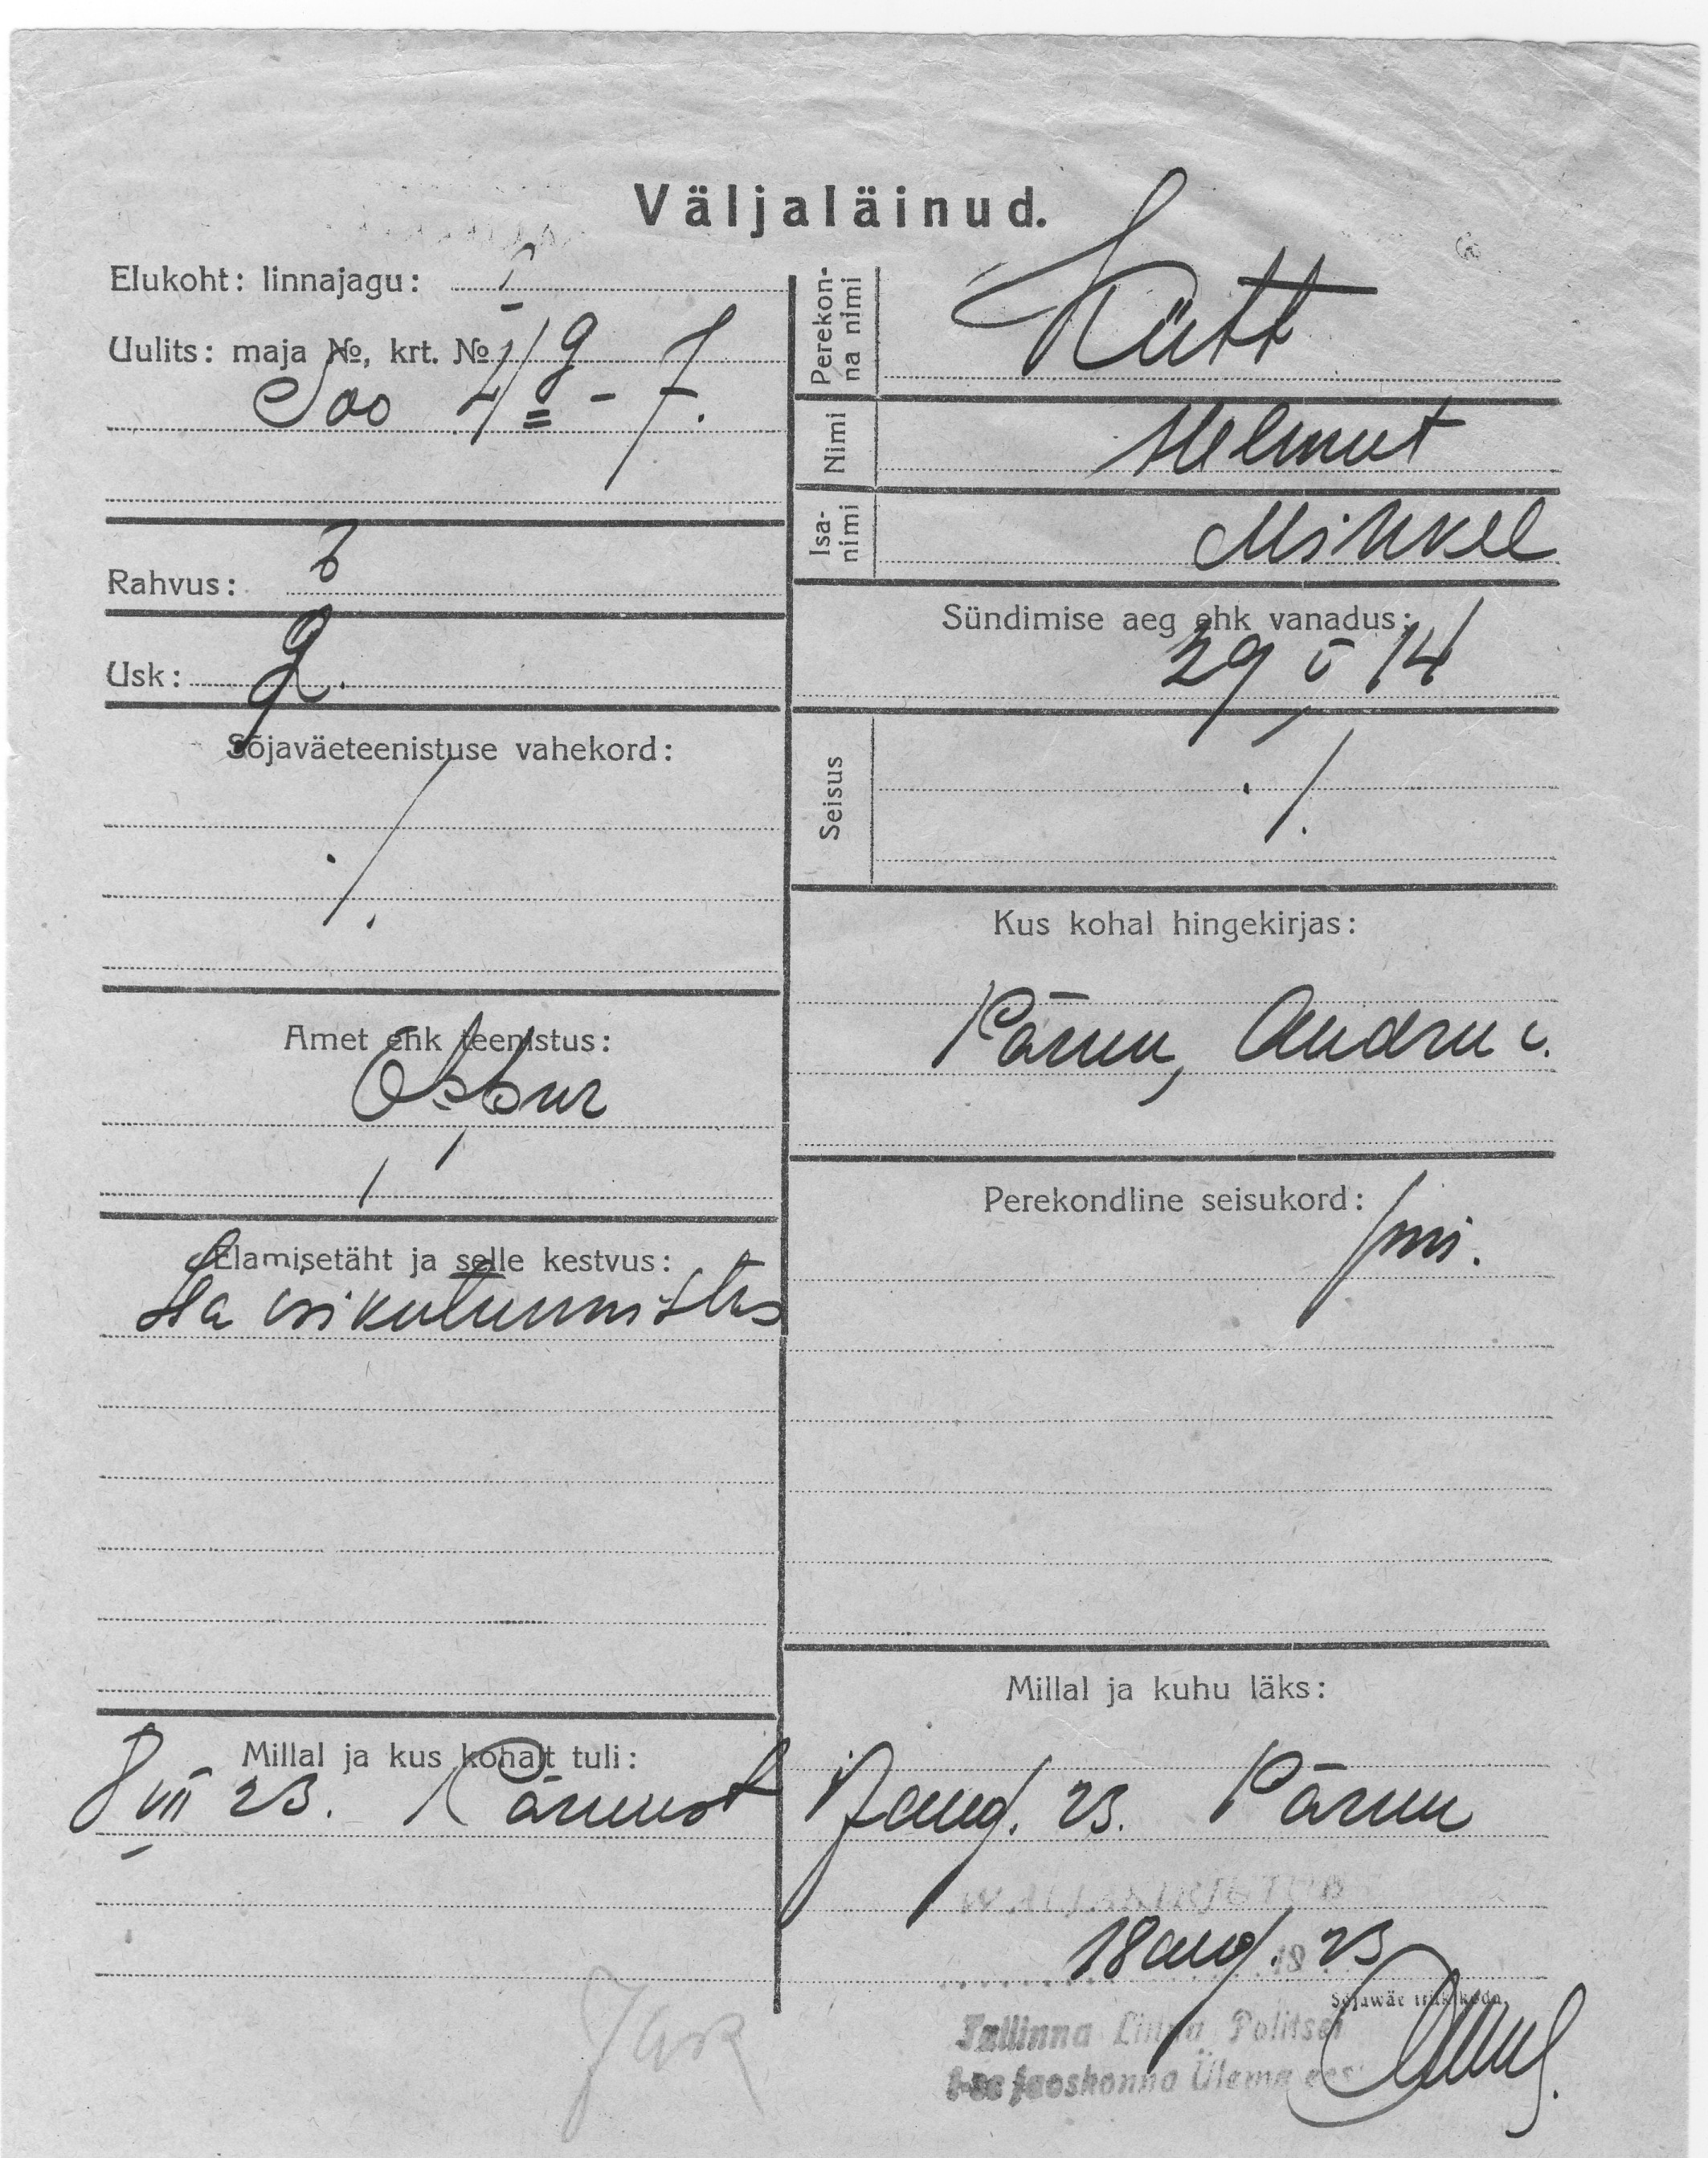 Väljaläinud.
Elukoht: linnajagu: I
Uulits: maja №, krt. №
Soo 4/9 - 7.
Rahvus:
Usk:
Sõjaväeteenistuse vahekord:
./.
Amet ehk teenistus:
Elamisetäht ja selle kestvus:
isikutunnistus
Millal ja kus kohalt tuli:
8 VIII 23. Pärnust
Perekonna nimi
Kütt
Nimi
Helmut
Isanimi
Mihkel
Sündimise aeg ehk vanadus:
29 V 14
Seisus
./.
Kus kohal hingekirjas:
Pärnu, Audru v.
Perekondline seisukord:
Millal ja kuhu läks:
17 aug. 23. Pärnu
WÄLJAKIRJUTUD
18 aug. 23
Sõjawäe trükikoda.
Tallinna Linna Politsei
jaoskonna Ülema eest